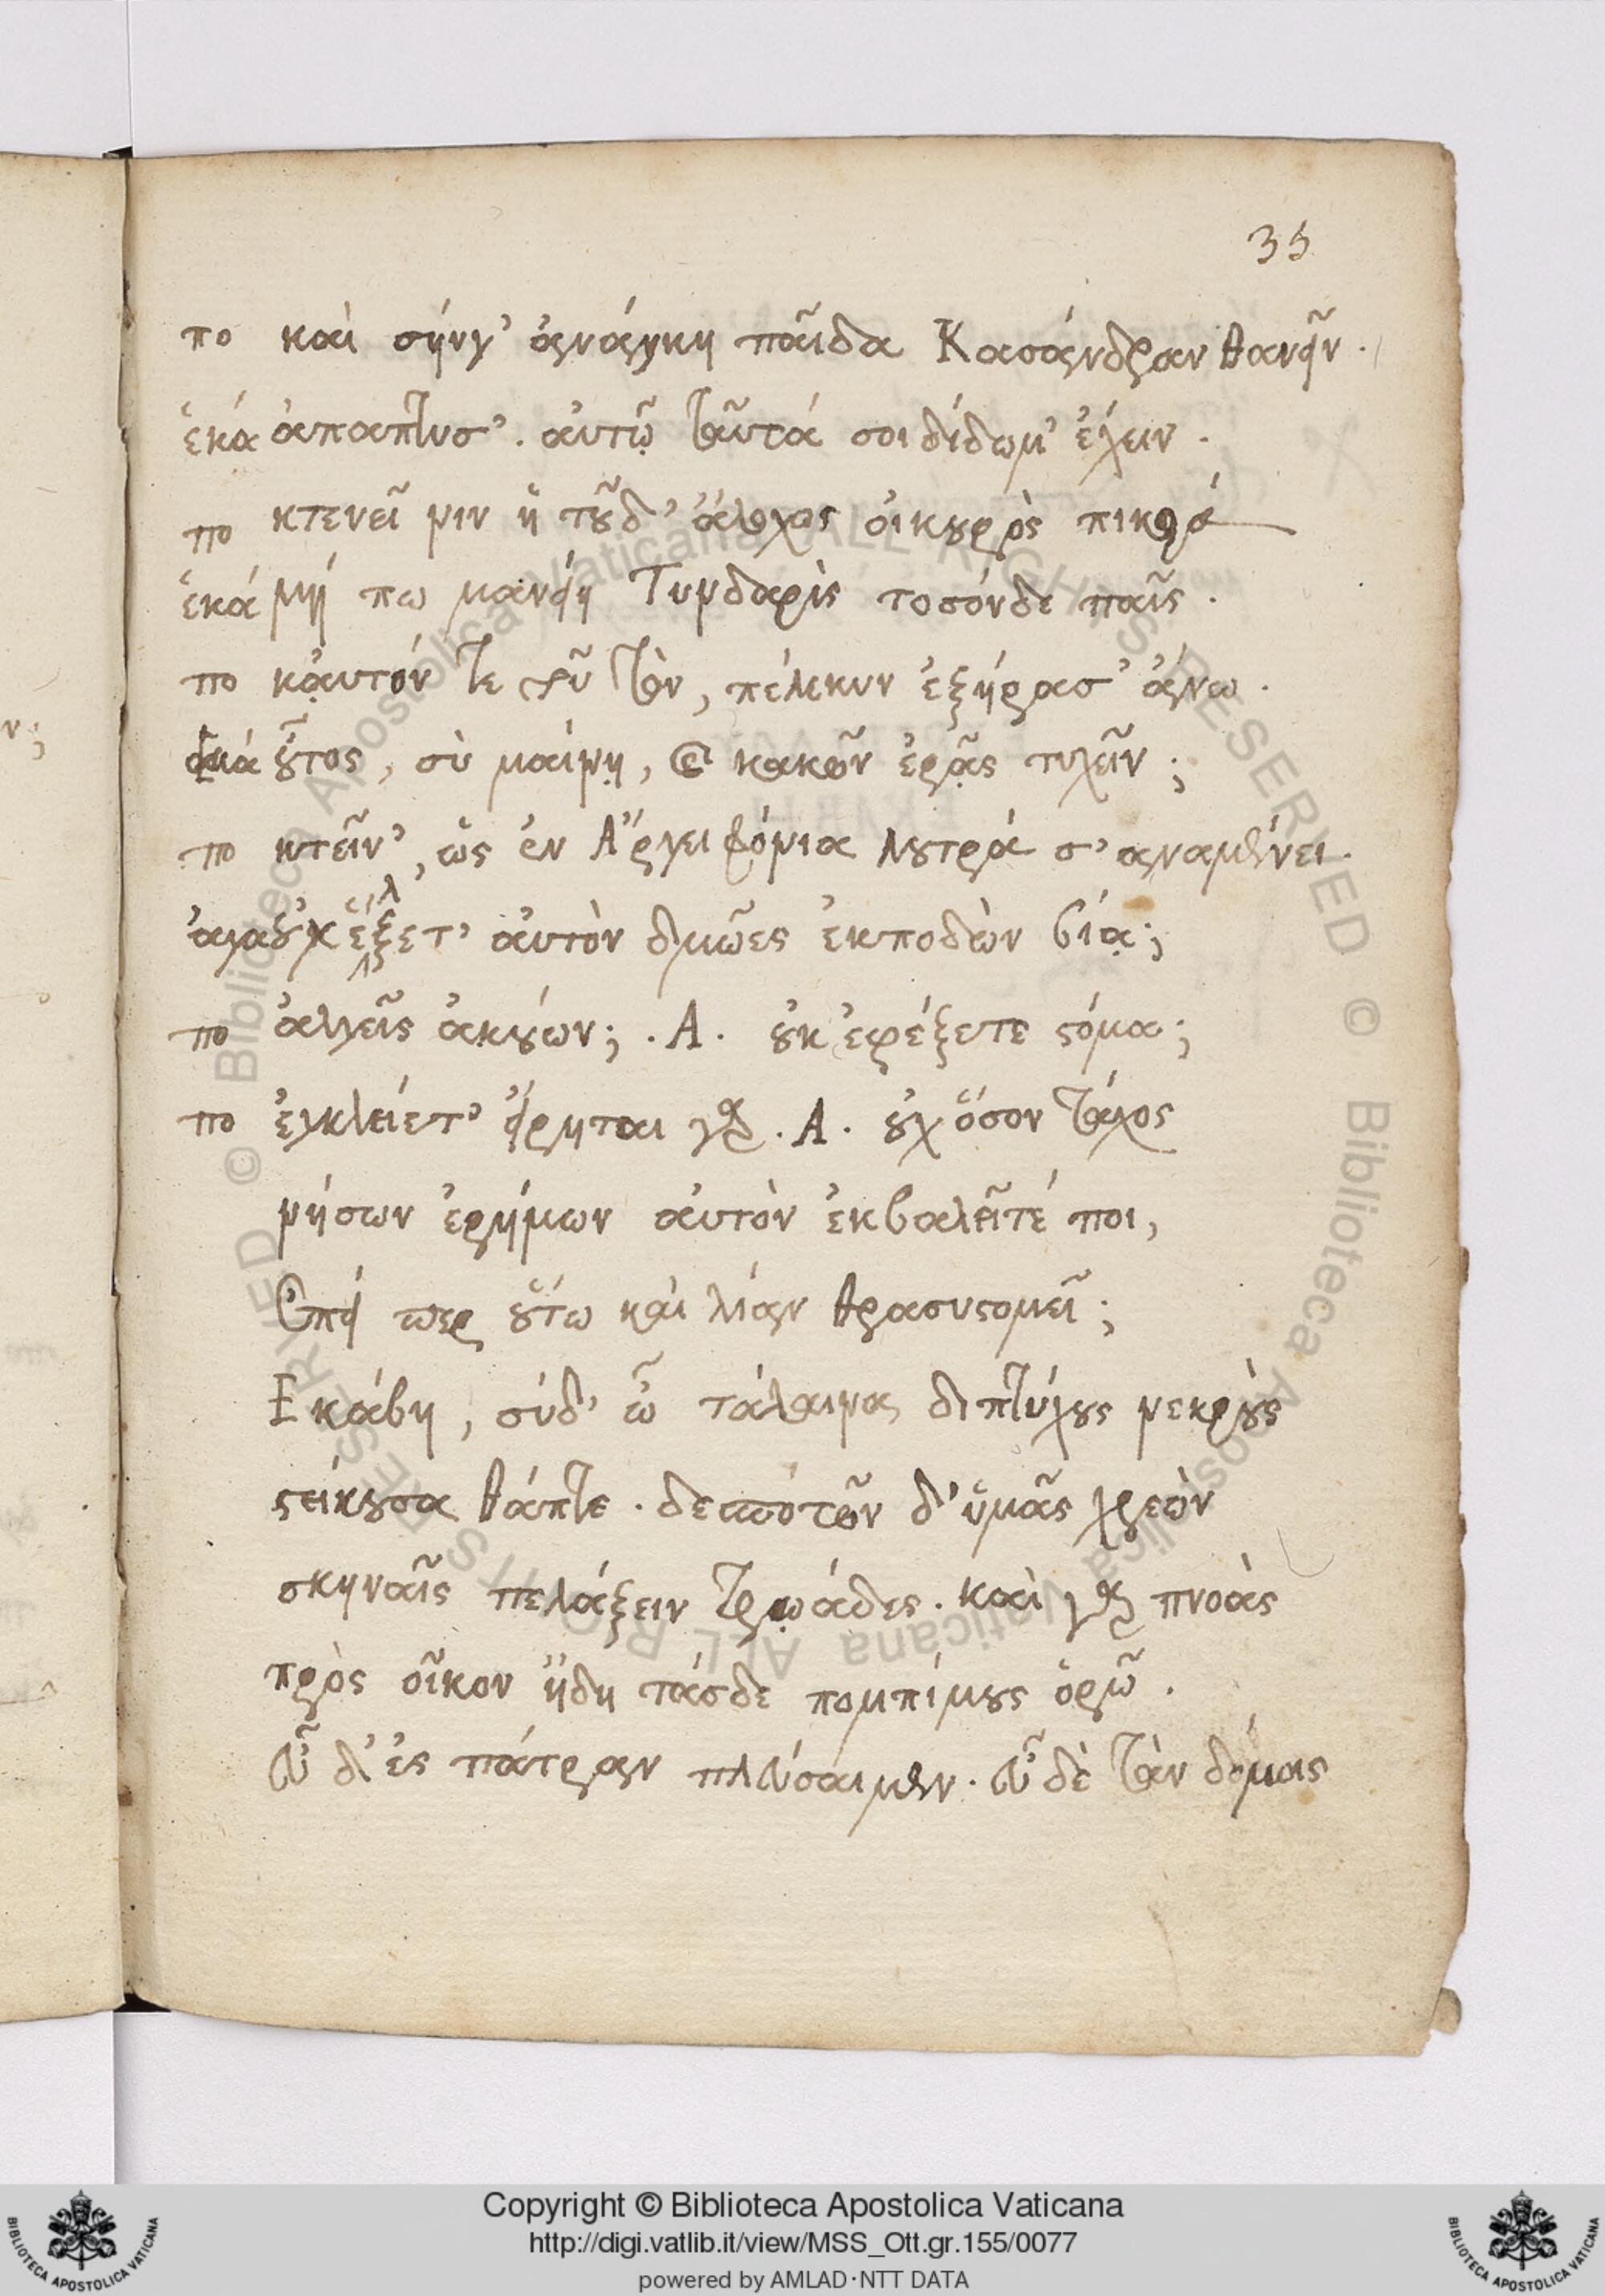 35
πο καὶ σήνγ' ἀνάγκη παῖδα Κασάνδραν θανεῖν.
ἑκά ἀπαπτυσ'. αὐτῷ ταῦτά σοι δίδωμ' ἔχειν.
πο κτενεῖ νιν ἡ τοῦδ' ἄλοχος οἰκουρὸς πικρά
ἑκά μή πω μανείη Τυνδαρὶς τοσόνδε παῖς.
πο κᾀυτόν τε τοῦτον, πέλεκυν ἐξήρασ' ἄνω.
οὗτος, σὺ μαίνῃ, καὶ κακῶν ἐρᾷς τυχεῖν;
πο κτεῖν', ὡς ἐν Ἄργει φόνια λουτρά σ' αναμένει.
ἀγα οὐχ ἕλξετ' αὐτὸν δμῶες ἐκποδὼν βίᾳ;
πο ἀλγεῖς ἀκούων; . Α. οὐκ ἐφέξετε στόμα;
πο ἐγκλείετ' εἴρηται γὰρ. Α. οὐχ ὅσον τάχος
νήσων ἐρήμων αὐτὸν ἐκβαλεῖτέ ποι,
Ἐπεί περ οὕτω καὶ λίαν θρασυστομεῖ;
Εκάβη, σύδ' ὦ τάλαινα διπτύχους νεκροὺς
στείχουσα θάπτε. δεσποτῶν δ' ὑμᾶς χρεὼν
σκηναῖς πελάζειν τρῳάδες. καὶ γὰρ πνοάς
πρὸς οἶκον ἤδη τάσδε πομπίμους ὁρῶ.
εὖ δ' ἐς πάτραν πλεύσαιμεν. εὖ δὲ τὰν δόμοις
Copyright © Biblioteca Apostolica Vaticana
http://digi.vatlib.it/view/MSS_Ott.gr.155/0077
powered by AMLAD·NTT DATA